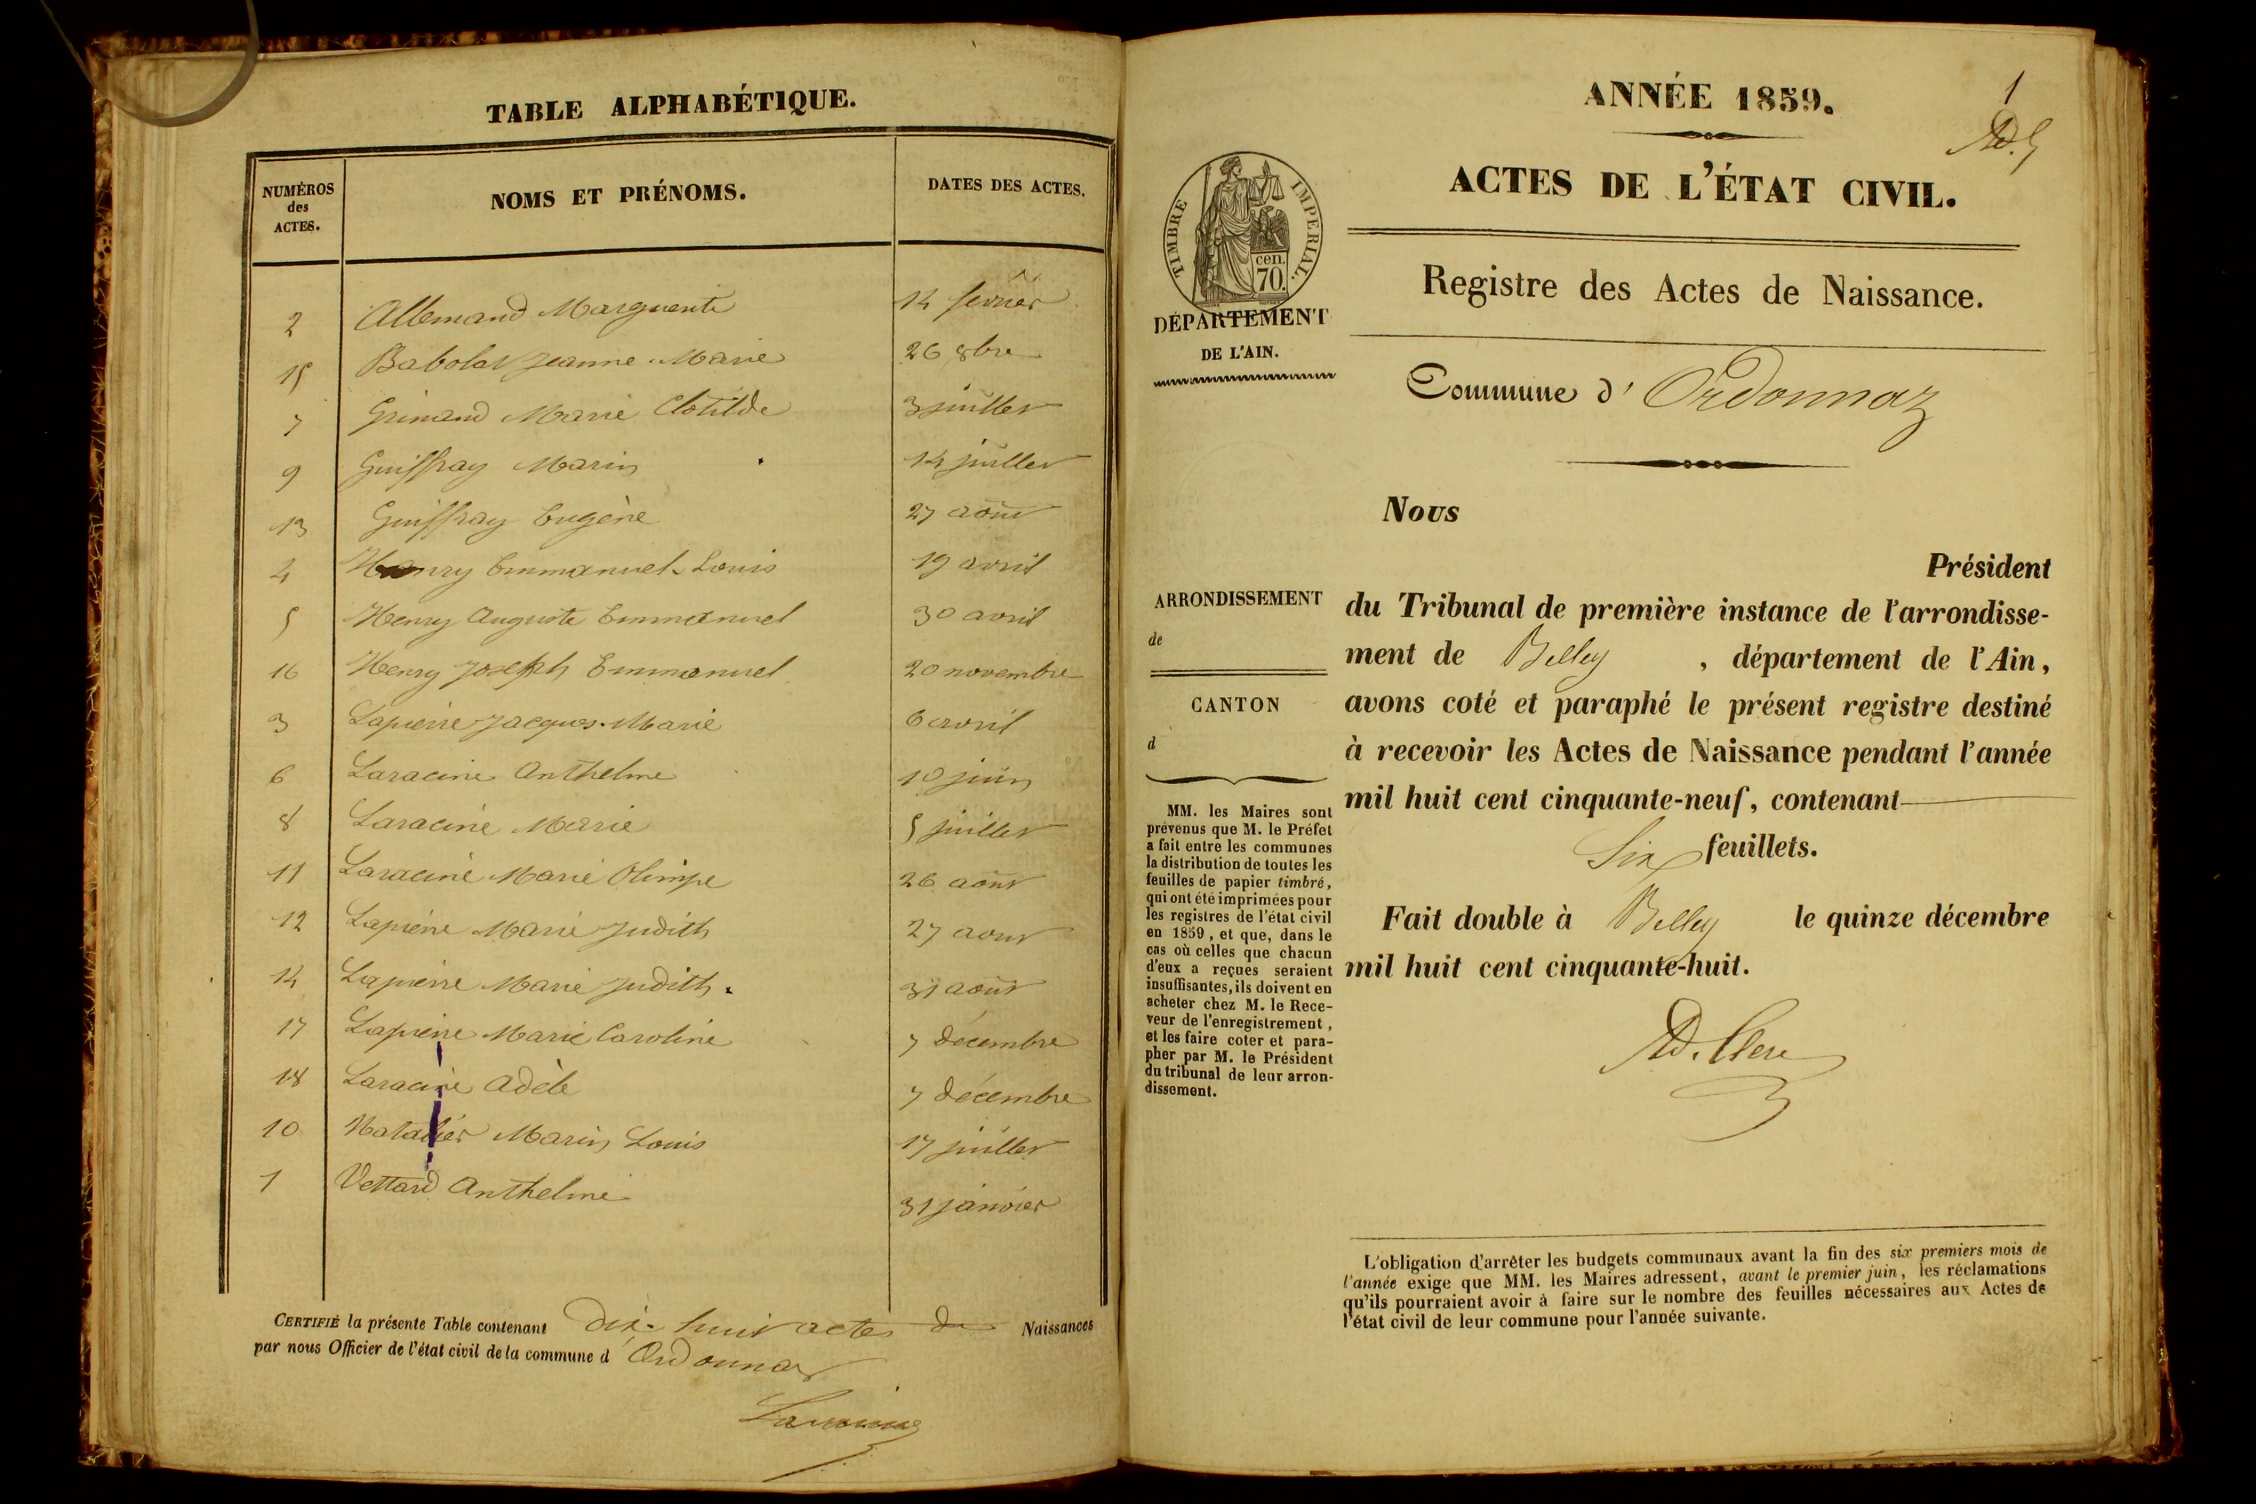 TABLE ALPHABÉTIQUE.
NUMÉROS des ACTES. NOMS ET PRÉNOMS. DATES DES ACTES.
2 Allemand Marguerite 14 février
15 Babolat Jeanne-Marie 26 8bre
7 Grimand Marie Clotilde 3 juillet
9 Guiffray Marin 14 juillet
13 Guiffray Eugène 27 août
4 Henry Emmanuel-Louis 19 avril
5 Henry Auguste Emmanuel 30 avril
16 Henry Joseph Emmanuel 20 novembre
3 Lapierre Jacques-Marie 6 avril
6 Laracine Anthelme 10 juin
8 Laracine Marie 5 juillet
11 Laracine Marie Olimpe 26 août
12 Lapierre Marie Judith 27 août
14 Lapierre Marie Judith. 31 août
17 Lapierre Marie Caroline 7 décembre
18 Laracine Adèle 7 décembre
10 Marin Louis 17 juillet
1 Vettard Anthelme 31 janvier
CERTIFIÉ la présente Table contenant dix-huit actes de Naissances
par nous Officier de l'état civil de la commune d'Ordonnaz
ANNÉE 1859.
1
ACTES DE L'ÉTAT CIVIL.
TIMBRE IMPERIAL.
cen.
70.
DÉPARTEMENT
DE L'AIN.
Registre des Actes de Naissance.
Commune d' Ordonnaz
Nous
Président
du Tribunal de première instance de l'arrondisse-
ment de Belley, département de l'Ain,
avons coté et paraphé le présent registre destiné
à recevoir les Actes de Naissance pendant l'année
mil huit cent cinquante-neuf, contenant
Six feuillets.
Fait double à Belley le quinze décembre
mil huit cent cinquante-huit.
Ad. Clerc
ARRONDISSEMENT
de
CANTON
d
MM. les Maires sont
prévenus que M. le Préfet
a fait entre les communes
la distribution de toutes les
feuilles de papier timbré,
qui ont été imprimées pour
les registres de l'état civil
en 1859, et que, dans le
cas où celles que chacun
d'eux a reçues seraient
insuffisantes, ils doivent en
acheter chez M. le Rece-
veur de l'enregistrement,
et les faire coter et para-
pher par M. le Président
du tribunal de leur arron-
dissement.
L'obligation d'arrêter les budgets communaux avant la fin des six premiers mois de
l'année exige que MM. les Maires adressent, avant le premier juin, les réclamations
qu'ils pourraient avoir à faire sur le nombre des feuilles nécessaires aux Actes de
l'état civil de leur commune pour l'année suivante.